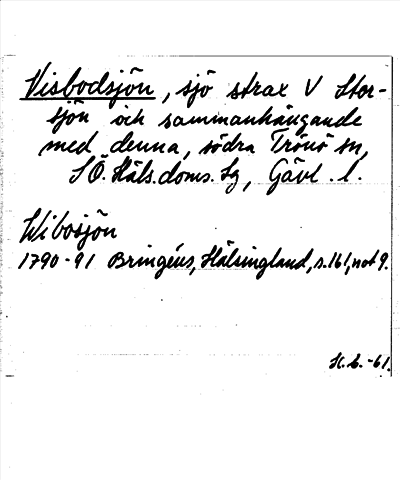 Visbodsjön, sjö strax V Stor-
sjön och sammanhängande
med denna, södra Trönö sn,
SÖ. Häls. doms. Sg, Gävl. l.
Wibosjön
1790-91 Bringéus, Hälsingland, s. 161, not 9.
H. L. -61.